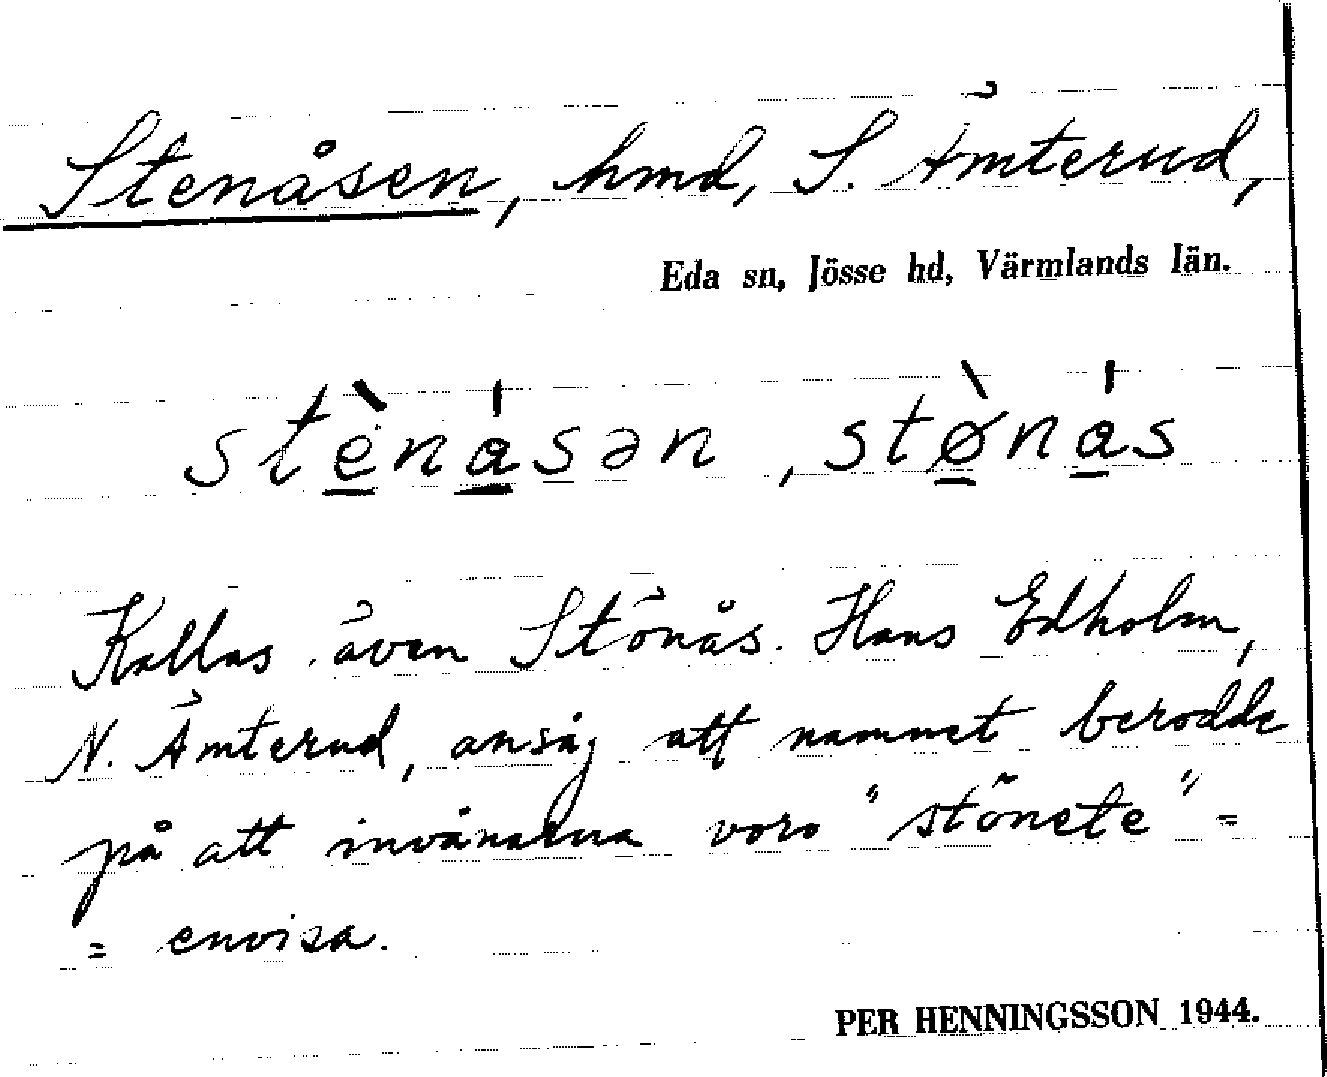 Stenåsen, hmd, S. Ämterud,
Eda sn, Jösse hd, Värmlands län.
stènásən, stø̀nás
Kallas även Stönås. Hans Edholm,
N. Ämterud, ansåg att namnet berodde
på att invånarna voro "stönete" =
= envisa.
PER HENNINGSSON 1944.